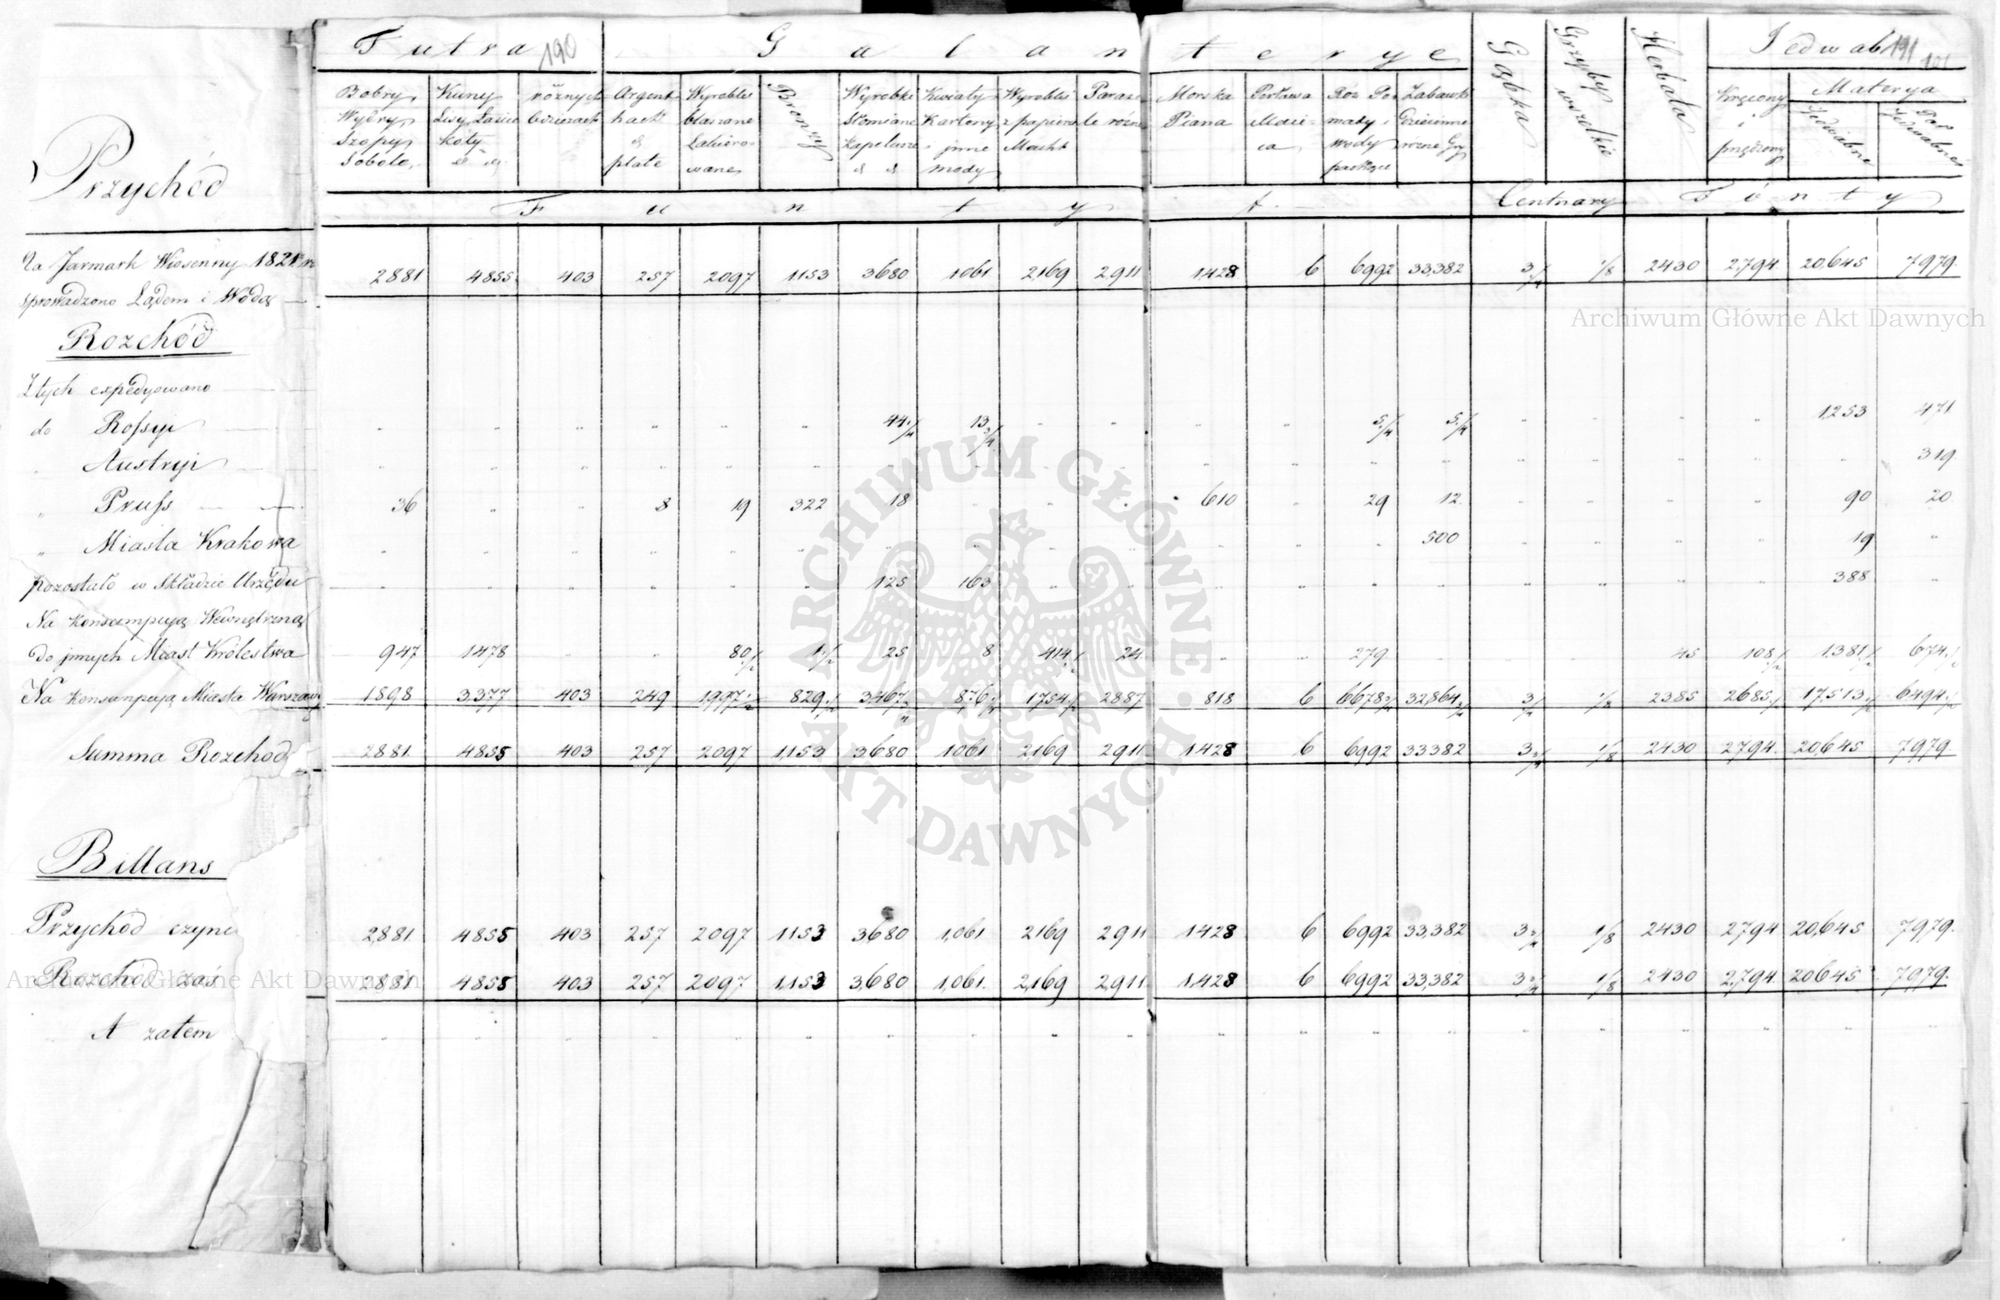 Futra 190 Galanterye Gąbka Grzyby wszelkie Herbata Jedwab 191 101
Bobry Wydry Szopy Sobole
Kuny Lisy Łasice Koty
różnych
Argent haché & platé
Wyroble blaszane Lakierowane
Bronzy
Wyrobki Słomiane Kapelusze & &
Kwiaty Kartony jnne mody
Wyroble z papieru Maché
Paraso le różne
Morska Piana
Perłowa Maci- ca
Róż Po mady wody pachące
Zabawki Dziecinne rozne Gry
Kręcony i przędzony
Materya
Jedwabne
Pół Jedwabne
Przychód
Funty Centnary Fónty
Na Jarmark Wiosenny 1821 2881 4855 403 257 2097 1153 3680 1061 2169 2911 1428 6 6992 33,382 3 3/4 1/8 2430 2,794 20,645 7979
sprowadzono Lądem i Wodą
Rozchód
Z tych expedyowano
do Rossyi 44 13 5 5 1,253 471
" Austryi 319
" Pruss 36 8 19 322 18 610 29 12 90 20
" Miasta Krakowa 500 19
pozostało w Składzie Urzędu 125 163 388
Na Konsumpcyą Wewnętrzną
do jnnych Miast Królestwa 947 1478 80 1/2 1 1/2 25 8 414 1/2 24 279 45 108 1/2 1,381 1/2 674 1/2
Na Konsumpcyą Miasta Warszawy 1898 3377 403 249 1997 1/2 829 1/2 3467 876 1754 1/2 2887 818 6 6678 32,864 3 3/4 1/8 2385 2685 1/2 17,513 1/2 6494 1/2
Summa Rozchod 2881 4855 403 257 2097 1,153 3680 1061 2169 2911 1428 6 6992 33382 3 3/4 1/8 2430 2,794 20,645 7979
Billans
Przychód czyni 2,881 4855 403 257 2097 1153 3680 1,061 2169 2911 1428 6 6992 33,382 3 3/4 1/8 2430 2794 20,645 7,979
Rozchód zaś 2881 4855 403 257 2097 1,153 3,680 1,061 2,169 2911 1,428 6 6992 33,382 3 3/4 1/8 2430 2,794 20645 7,979
A zatem
Archiwum Główne Akt Dawnych
Archiwum Główne Akt Dawnych
ARCHIWUM GŁÓWNE AKT DAWNYCH